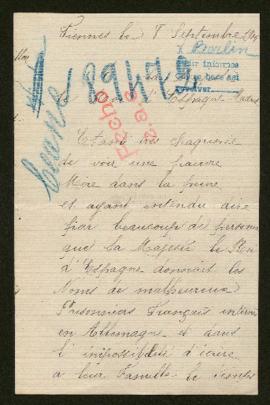 Fiennes le 8 Septembre
Berlin
189472
Fecho
Espagne Madrid
Etant très chagrinée
de voir une pauvre
Mère dans la peine
et ayant entendu dire
par beaucoup de personnes
que Sa Majesté le Roi
d'Espagne donnait les
Noms de malheureux
Prisonniers Français internés
en Allemagne et dans
l'impossibilité d'écrire
a leur Famille